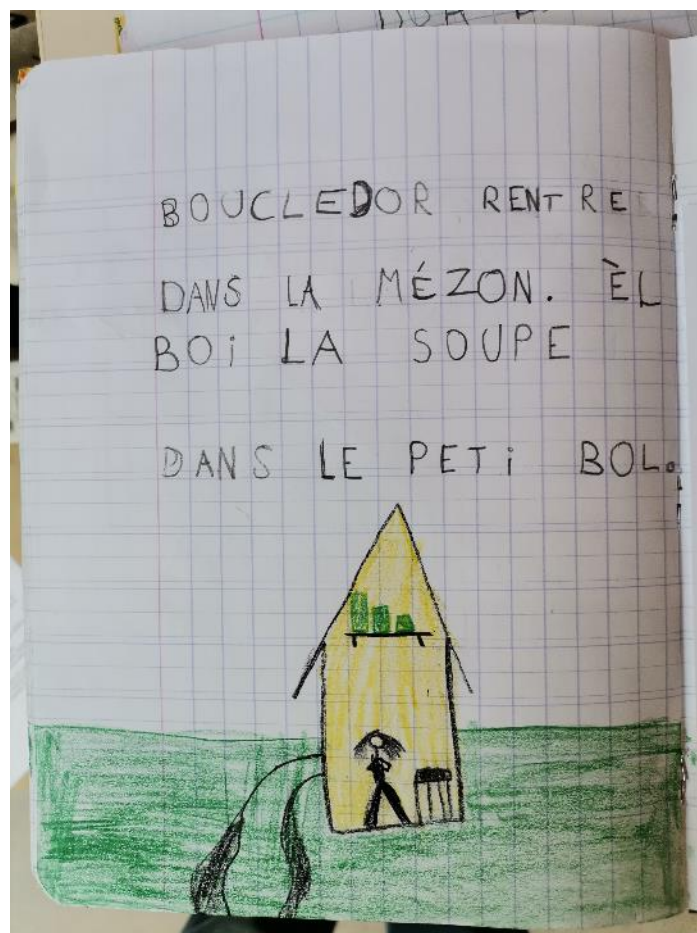 BOUCLEDOR RENTRE
DANS LA MÉZON. ÈL
BOi LA SOUPE
DANS LE PETi BOL.